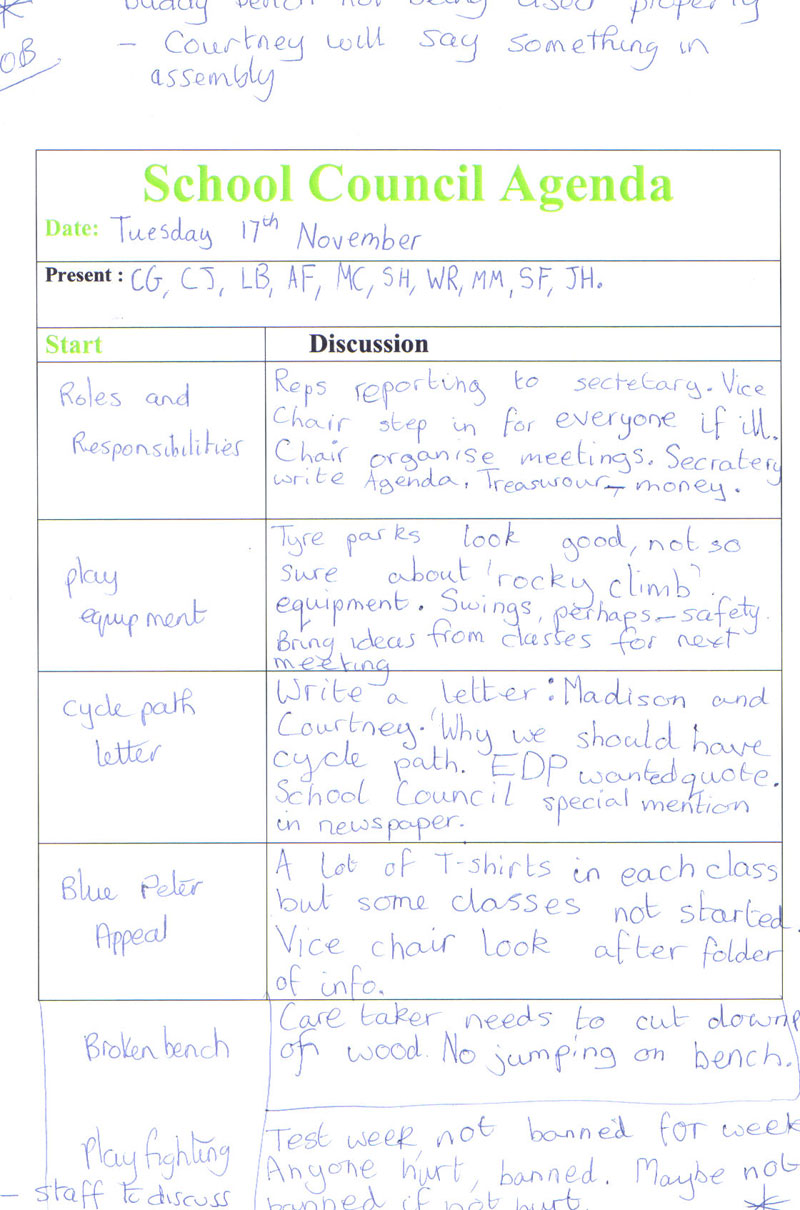 buddy bench not being used properly
OB
- Courtney will say something in
assembly
School Council Agenda
Date: Tuesday 17th November
Present : CG, CJ, LB, AF, MC, SH, WR, MM, SF, JH.
Start
Discussion
Roles and
Responsibilities
Reps reporting to sectetary. Vice
Chair step in for everyone if ill.
Chair organise meetings. Secratery
write Agenda. Treaswour - money.
play
equipment
Tyre parks look good, not so
sure about 'rocky climb'
equipment. Swings, perhaps - safety.
Bring ideas from classes for next
meeting
Cycle path
letter
Write a letter: Madison and
Courtney. 'Why we should have
cycle path. EDP wanted quote.
School Council special mention
in newspaper.
Blue Peter
Appeal
A lot of T-shirts in each class
but some classes not started.
Vice chair look after folder
of info.
Broken bench
Care taker needs to cut down
of wood. No jumping on bench.
Play fighting
- staff to discuss
Test week, not banned for week
Anyone hurt, banned. Maybe not
banned if not hurt.